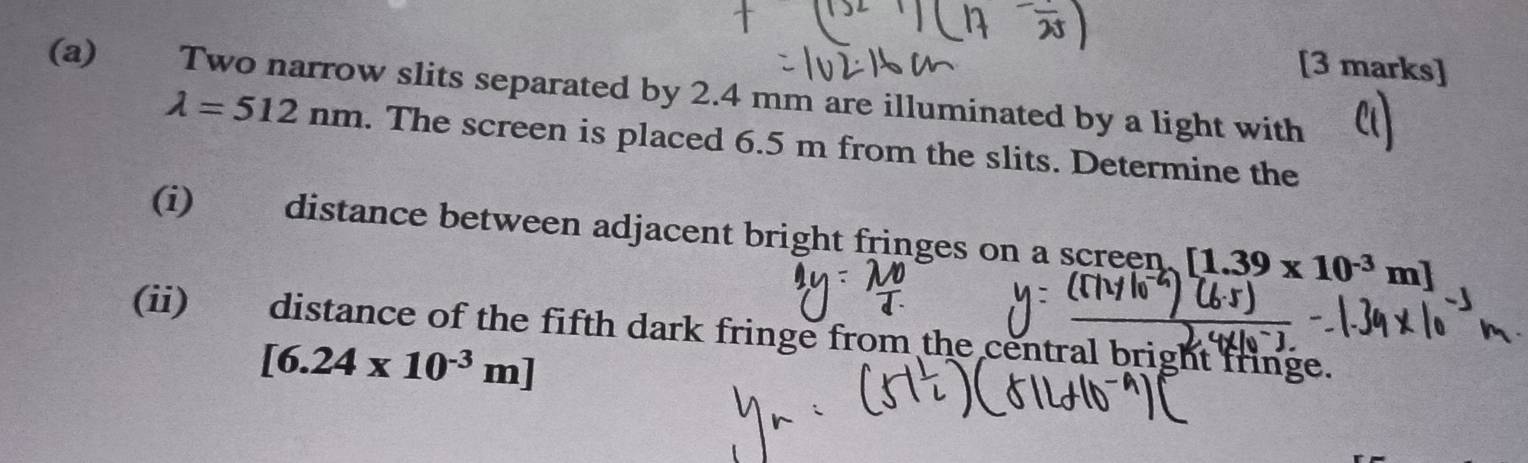 = 102.16 cm
[3 marks]
(a) Two narrow slits separated by 2.4 mm are illuminated by a light with
λ = 512 nm. The screen is placed 6.5 m from the slits. Determine the
(i) distance between adjacent bright fringes on a screen. [1.39 x 10⁻³ m]
(6.5)
= 1.39 × 10⁻³ m.
(ii) distance of the fifth dark fringe from the central bright fringe.
[6.24 x 10⁻³ m]